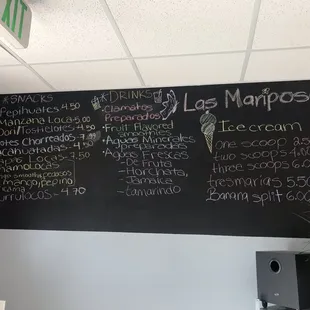 SNACKS
Tepihuates 4.50
Manzana Loca 5.00
Dori/Tostielotes 4.50
otes Chorreados 5.00
acahuatadas 4.50
Locas 7.50
Chamoladas
mango, pepino
4.70
DRINKS
Clamatos
Preparados
Fruit Flavored
smoothies
Aguas Minerales
preparados
Aguas Frescas
- De Fruta
- Horchata,
- Jamaica
- Tamarindo
Las Maripos
Ice cream
one scoop
two scoops
three scoops 6.
tresmarias 5.50
Banana split 6.00